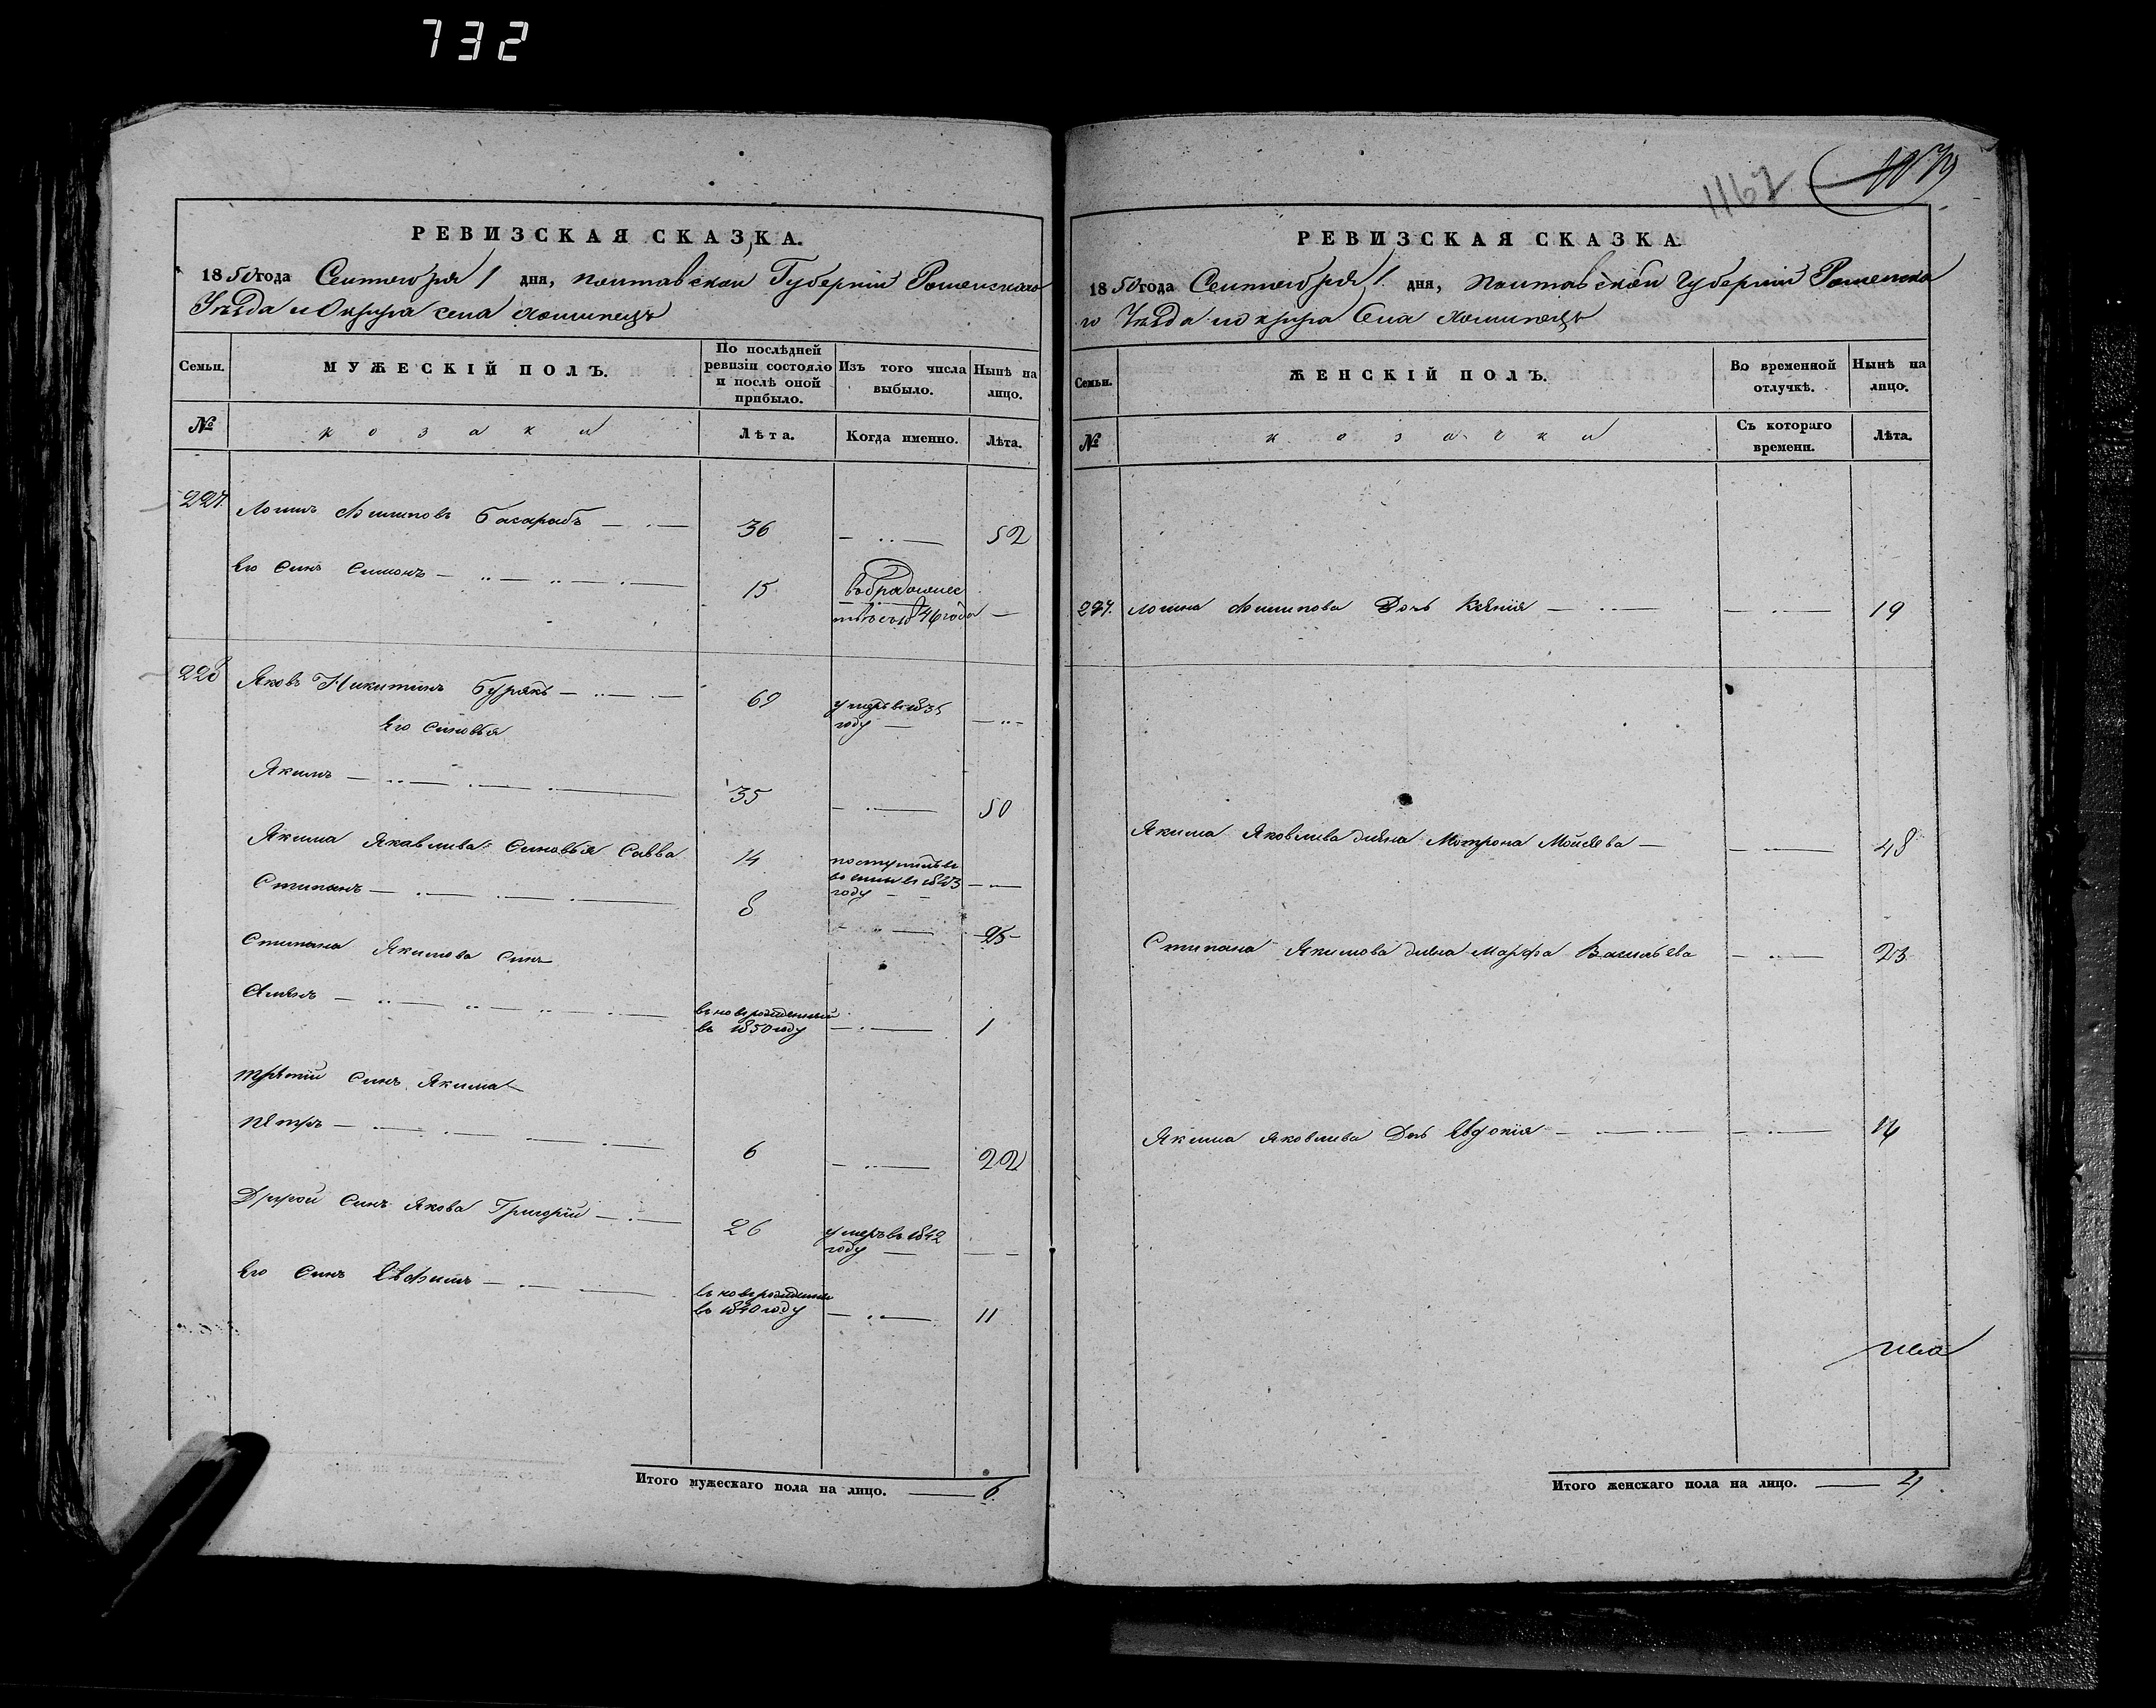 732
РЕВИЗСКАЯ СКАЗКА.
1850 года Сентебря 1 дня, Полтавской Губернии Роменскаго
Уезда и Округа села
Семьи.
МУЖЕСКІЙ ПОЛЪ.
По послѣдней ревизіи состояло и послѣ оной прибыло.
Изъ того числа выбыло.
Нынѣ на лицо.
№
козаки
Лѣта.
Когда именно.
Лѣта.
227. Басарабъ — 36 — 52
Его Синъ Симонъ — 15 46 года —
228 Яковъ Никитинъ Бурякъ — 69 умеръ в 1835 году —
Его Синовья
Якимъ — 35 — 50
Якима Яковлива Синовья Савва 14 поступилъ в 1843 году —
Стипанъ — 8 — 25
Стипана Якимова Синъ
въ новорожденный в 1850 году — 1
Третій Синъ Якима
Петръ — 6 — 22
Другой Синъ Якова Григорій — 26 умеръ в 1842 году —
Его Синъ Евфимъ — в 1840 году — 11
Итого мужескаго пола на лицо. — 6.
1162
РЕВИЗСКАЯ СКАЗКА.
1850 года Сентебря 1. дня, Полтавской Губернии Роменска
го Уезда и округа Села
Семьи.
ЖЕНСКІЙ ПОЛЪ.
Во временной отлучкѣ.
Нынѣ на лицо.
№
козачки
Съ котораго времени.
Лѣта.
227. Дочь Ксения — — 19
Якима Яковлива жена Мотрона Мойсеева — — 48
Стипана Якимова жена Марфа Васильева — 23
Якима Яковлива Дочь Евдокия — — 14
Итого женскаго пола на лицо. — 4